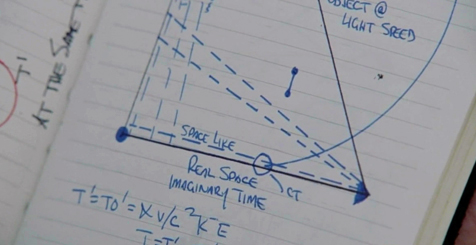 OBJECT @
LIGHT SPEED
T'
AT THE SAME
SPACE LIKE
REAL SPACE
IMAGINARY TIME
CT